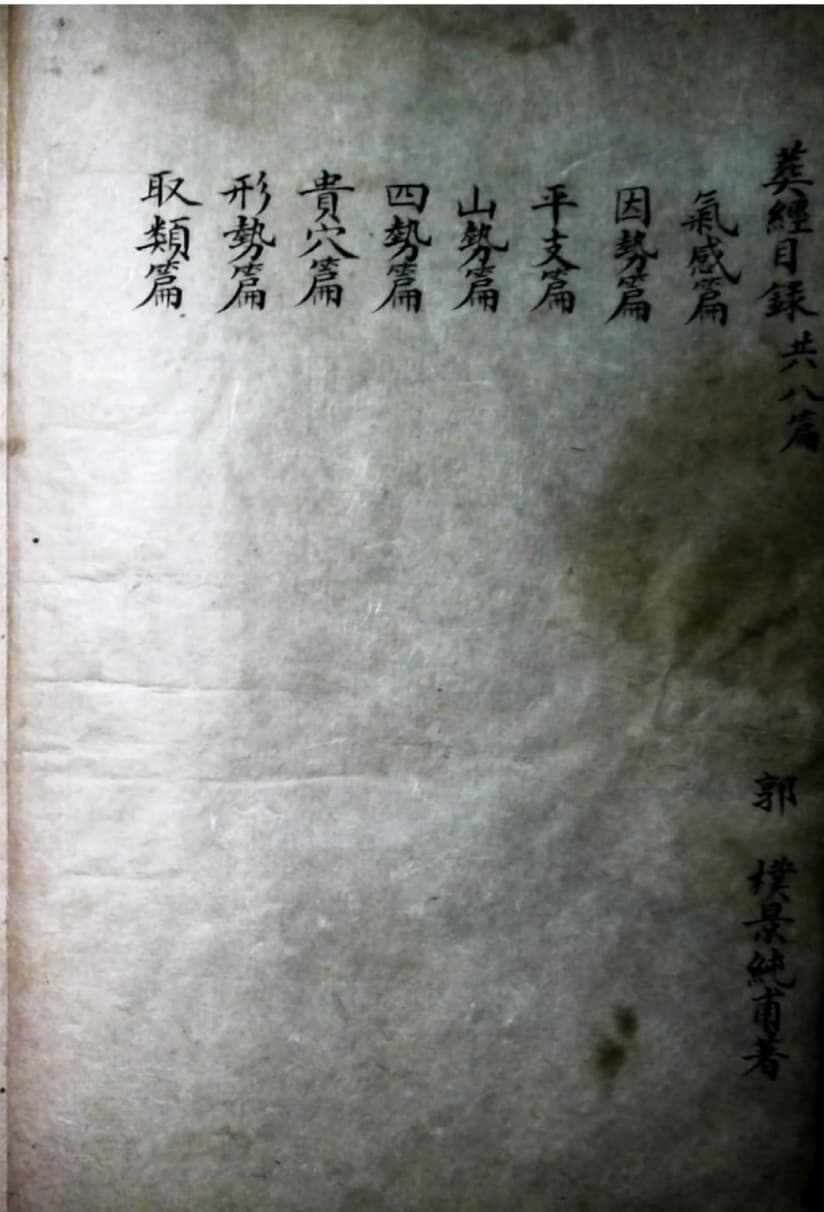 葬經目錄 共八篇
郭 樸景純甫著
氣感篇
因勢篇
平支篇
山勢篇
四勢篇
貴穴篇
形勢篇
取類篇